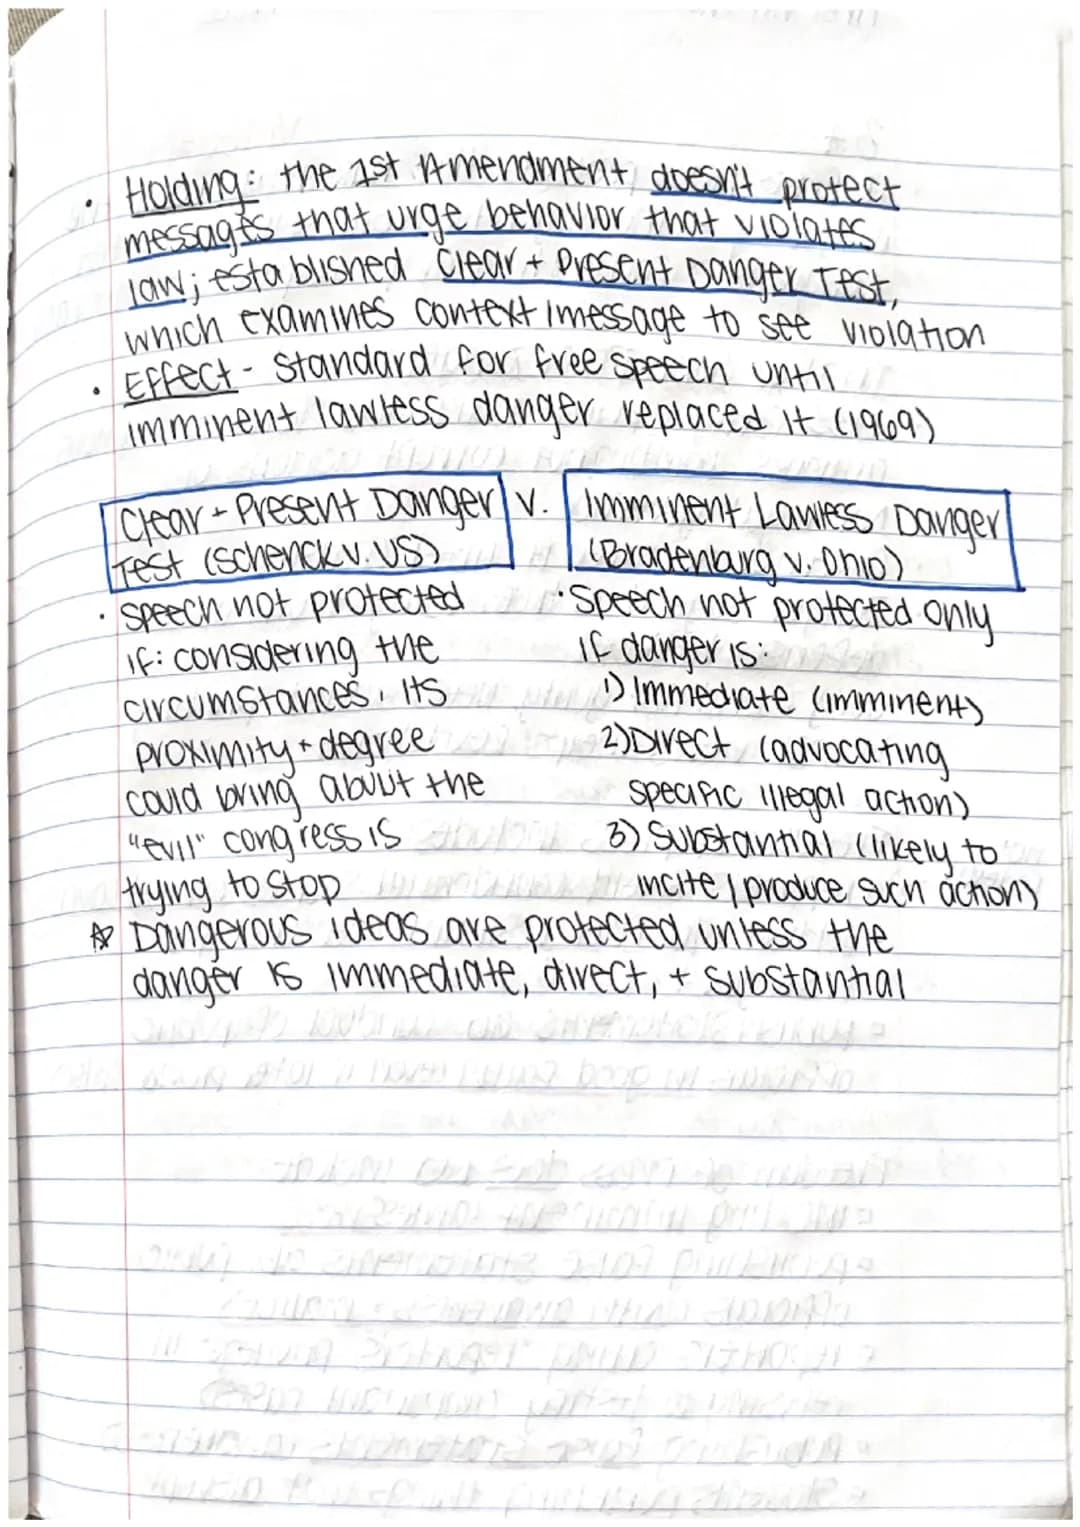 • Holding: the 1st Amendment doesn't protect
messages that urge behavior that violates
law; established Clear + Present Danger Test,
which examines context/message to see violation
• Effect - Standard for free speech until
imminent lawless danger replaced it (1969)
Clear + Present Danger
Test (Schenck v. US)
v.
Imminent Lawless Danger
(Bradenburg v. Ohio)
• Speech not protected
if: considering the
circumstances, its
proximity + degree
could bring about the
"evil" congress is
trying to stop
• Speech not protected only
if danger is:
1) Immediate (imminent)
2) Direct (advocating
specific illegal action)
3) Substantial (likely to
incite/produce such action)
☆ Dangerous ideas are protected unless the
danger is immediate, direct, + substantial